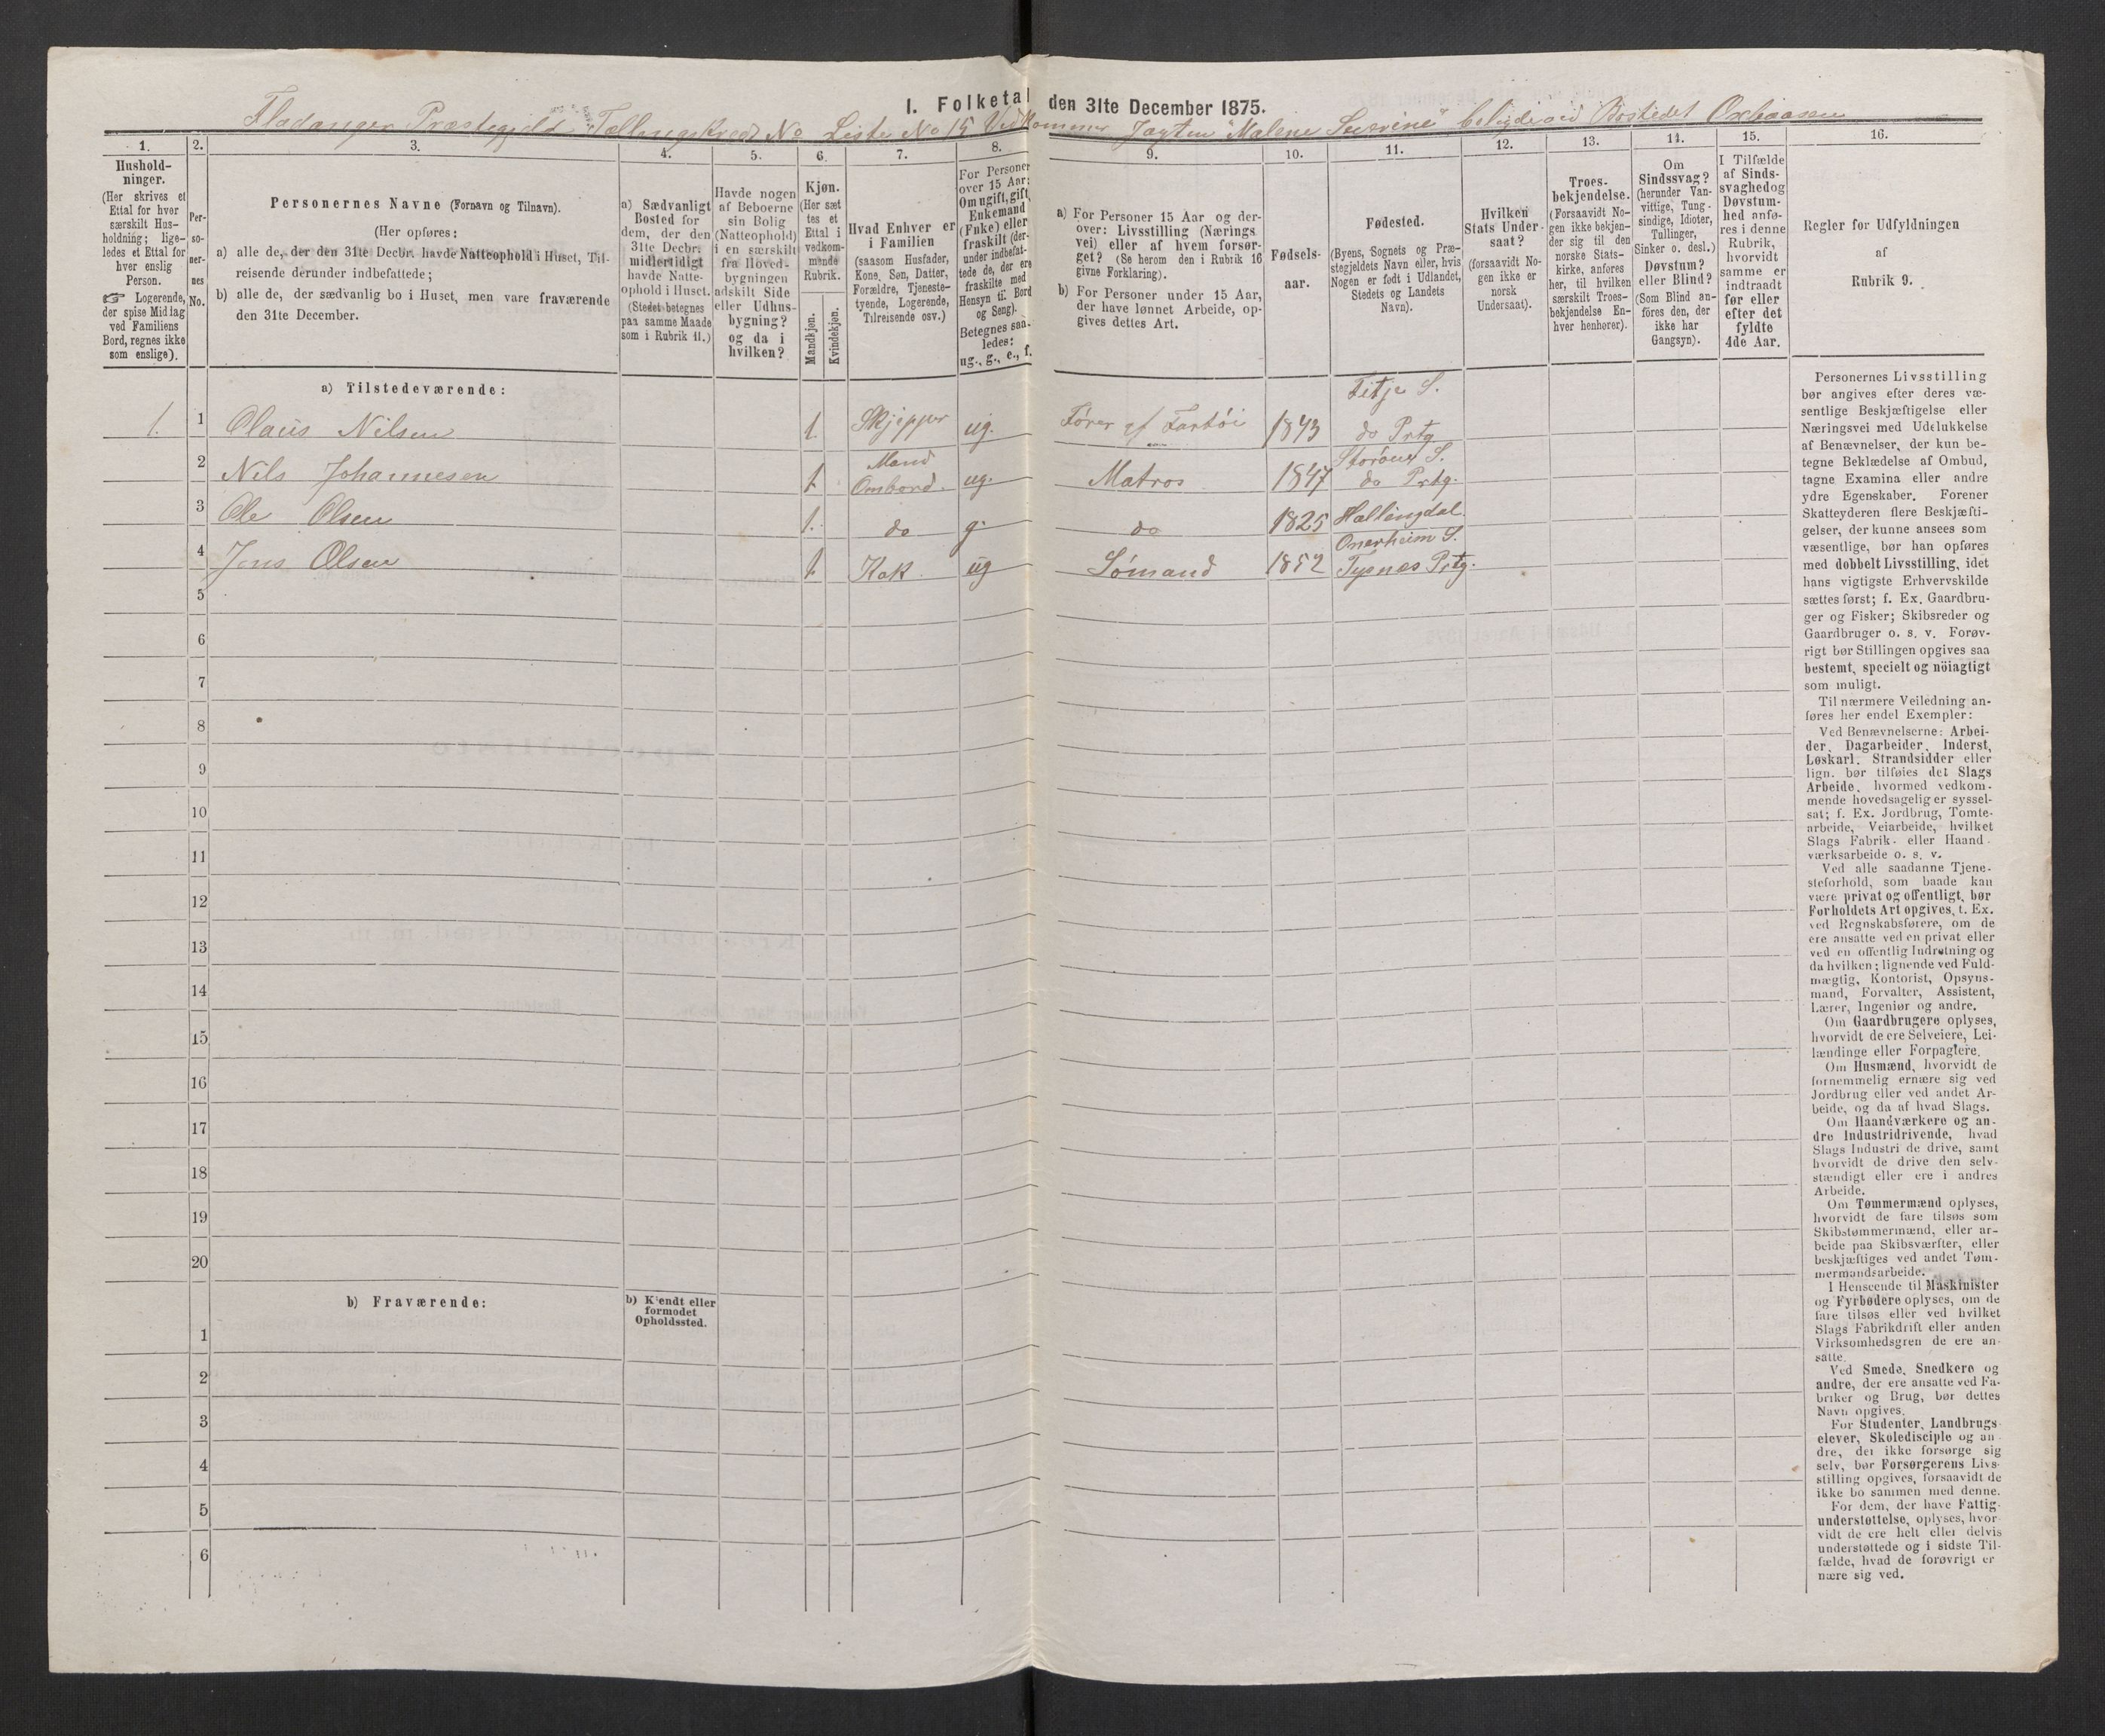 I. Folketal den 31te December 1875.
Fladanger Præstegjeld Tællingskreds No Liste No 15 Vedkommer Jagten "Malene Severine" beliggd. ved Bostedet Oxbaasen
1.
Hushold-
ninger.
(Her skrives et
Ettal for hver
særskilt Hus-
holdning; lige-
ledes et Ettal for
hver enslig
Person.
☞ Logerende,
der spise Middag
ved Familiens
Bord, regnes ikke
som enslige).
2.
Per-
so-
ner-
nes
No.
3.
Personernes Navne (Fornavn og Tilnavn).
(Her opføres:
a) alle de, der den 31te Decbr. havde Natteophold i Huset, Til-
reisende derunder indbefattede;
b) alle de, der sædvanlig bo i Huset, men vare fraværende
den 31te December.
4.
a) Sædvanligt
Bosted for
dem, der den
31te Decbr.
midlertidigt
havde Natte-
ophold i Huset.
(Stedet betegnes
paa samme Maade
som i Rubrik 11.)
5.
Havde nogen
af Beboerne
sin Bolig
(Natteophold)
i en særskilt
fra Hoved-
bygningen
adskilt Side
eller Udhus-
bygning?
og da i
hvilken?
6.
Kjøn.
(Her sæt
tes et
Ettal i
vedkom-
mende
Rubrik.
Mandkjøn.
Kvindekjøn.
7.
Hvad Enhver er
i Familien
(saasom Husfader,
Kone, Søn, Datter,
Forældre, Tjeneste-
tyende, Logerende,
Tilreisende osv.)
8.
For Personer
over 15 Aar:
Om ugift, gift,
Enkemand
(Enke) eller
fraskilt (der-
under indbefat-
tede de, der ere
fraskilte med
Hensyn til Bord
og Seng).
Betegnes saa-
ledes:
ug., g., e., f.
9.
a) For Personer 15 Aar og der-
over: Livsstilling (Nærings
vei) eller af hvem forsør-
get? (Se herom den i Rubrik 16
givne Forklaring).
b) For Personer under 15 Aar,
der have lønnet Arbeide, op-
gives dettes Art.
10.
Fødsels-
aar.
11.
Fødested.
(Byens, Sognets og Præ-
stegjeldets Navn eller, hvis
Nogen er født i Udlandet,
Stedets og Landets
Navn).
12.
Hvilken
Stats Under-
saat?
(forsaavidt No-
gen ikke er
norsk
Undersaat).
13.
Troes-
bekjendelse.
(Forsaavidt No-
gen ikke bekjen-
der sig til den
norske Stats-
kirke, anføres
her, til hvilken
særskilt Troes-
bekjendelse En-
hver henhører).
14.
Om
Sindssvag?
(herunder Van-
vittige, Tung-
sindige, Idioter,
Tullinger,
Sinker o. desl.)
Døvstum?
eller Blind?
(Som Blind an-
føres den, der
ikke har
Gangsyn).
15.
I Tilfælde
af Sinds-
svaghed og
Døvstum-
hed anfø-
res i denne
Rubrik,
hvorvidt
samme er
indtraadt
før eller
efter det
fyldte
4de Aar.
16.
Regler for Udfyldningen
af
Rubrik 9.
a) Tilstedeværende:
1. 1 Olaüs Nilsen 1. Skjipper ug. Fører af Fartöi 1843 Fitje S. do Prtg
2 Nils Johannesen 1 Mand Ombord. ug. Matros 1847 Storöens S. do Prtg.
3 Ole Olsen 1. do g. do 1825 Hallingdal.
4 Jens Olsen 1 Kok ug Sömand 1852 Onarheim S. Tysnæs Prtg.
5
6
7
8
9
10
11
12
13
14
15
16
17
18
19
20
b) Fraværende:
b) Kjendt eller
formodet
Opholdssted.
1
2
3
4
5
6
Personernes Livsstilling
bør angives efter deres væ-
sentlige Beskjæftigelse eller
Næringsvei med Udelukkelse
af Benævnelser, der kun be-
tegne Beklædelse af Ombud,
tagne Examina eller andre
ydre Egenskaber. Forener
Skatteyderen flere Beskjæfti-
gelser, der kunne ansees som
væsentlige, bør han opføres
med dobbelt Livsstilling, idet
hans vigtigste Erhvervskilde
sættes først; f. Ex. Gaardbru-
ger og Fisker; Skibsreder og
Gaardbruger o. s. v. Forøv-
rigt bør Stillingen opgives saa
bestemt, specielt og nöiagtigt
som muligt.
Til nærmere Veiledning an-
føres her endel Exempler:
Ved Benævnelserne: Arbei-
der, Dagarbeider, Inderst,
Løskarl, Strandsidder eller
lign. bør tilføies det Slags
Arbeide, hvormed vedkom-
mende hovedsagelig er syssel-
sat; f. Ex. Jordbrug, Tomte-
arbeide, Veiarbeide, hvilket
Slags Fabrik- eller Haand-
værksarbeide o. s. v.
Ved alle saadanne Tjene-
steforhold, som baade kan
være privat og offentligt, bør
Forholdets Art opgives, t. Ex.
ved Regnskabsførere, om de
ere ansatte ved en privat eller
ved en offentlig Indretning og
da hvilken; lignende ved Fuld-
mægtig, Kontorist, Opsyns-
mand, Forvalter, Assistent,
Lærer, Ingeniør og andre.
Om Gaardbrugere oplyses,
hvorvidt de ere Selveiere, Lei-
lændinge eller Forpagtere.
Om Husmænd, hvorvidt de
fornemmelig ernære sig ved
Jordbrug eller ved andet Ar-
beide, og da af hvad Slags.
Om Haandværkere og an-
dre Industridrivende, hvad
Slags Industri de drive, samt
hvorvidt de drive den selv-
stændigt eller ere i andres
Arbeide.
Om Tømmermænd oplyses,
hvorvidt de fare tilsøs som
Skibstømmermænd, eller ar-
beide paa Skibsværfter, eller
beskjæftiges ved andet Tøm-
mermandsarbeide.
I Henseende til Maskinister
og Fyrbødere oplyses, om de
fare tilsøs eller ved hvilket
Slags Fabrikdrift eller anden
Virksomhedsgren de ere an-
satte.
Ved Smede, Snedkere og
andre, der ere ansatte ved Fa-
briker og Brug, bør dettes
Navn opgives.
For Studenter, Landbrugs-
elever, Skoledisciple og an-
dre, der ikke forsørge sig
selv, bør Forsørgerens Livs-
stilling opgives, forsaavidt de
ikke bo sammen med denne.
For dem, der have Fattig-
understøttelse, oplyses, hvor-
vidt de ere helt eller delvis
understøttede og i sidste Til-
fælde, hvad de forøvrigt er
nære sig ved.